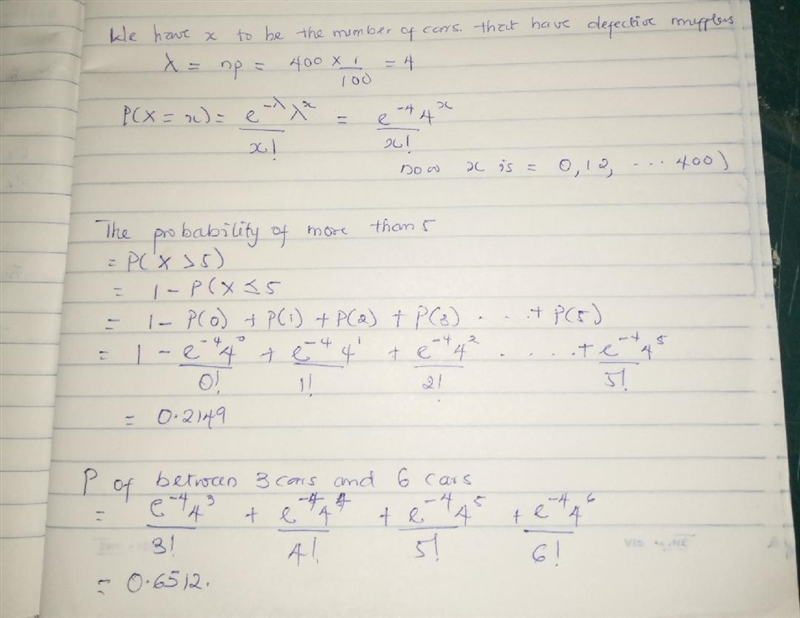 We have x to be the number of cars. that have defective mufflers
λ = np = 400 × 1/100 = 4
P(X = x) = e^-λ λ^x / x! = e^-4 4^x / x!
now x is = 0,12, ... 400)
The probability of more than 5
= P(X > 5)
= 1 - P(X ≤ 5
= 1 - P(0) + P(1) + P(2) + P(3) ... + P(5)
= 1 - e^-4 4^0 / 0! + e^-4 4^1 / 1! + e^-4 4^2 / 2! .... + e^-4 4^5 / 5!
= 0.2149
P of between 3 cars and 6 cars
= e^-4 4^3 / 3! + e^-4 4^4 / 4! + e^-4 4^5 / 5! + e^-4 4^6 / 6!
= 0.6512.